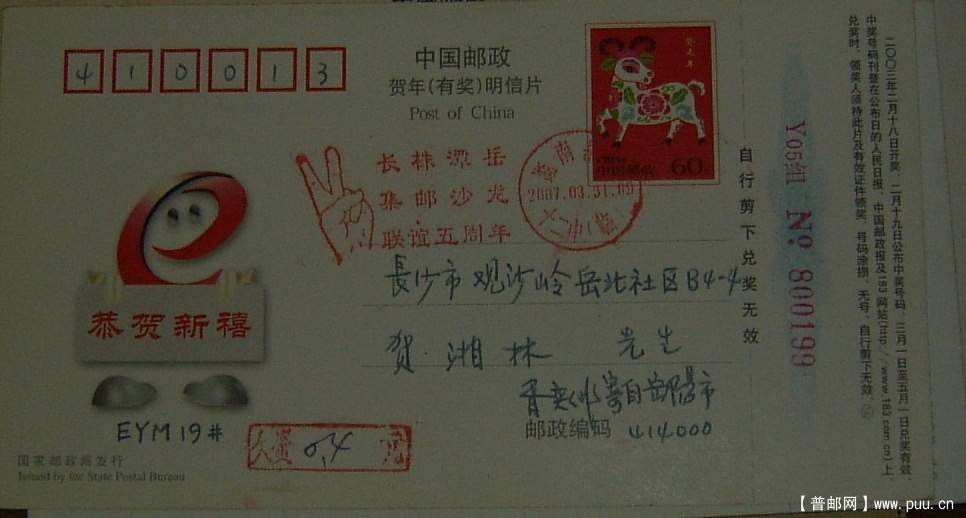 410013
中国邮政
贺年(有奖)明信片
Post of China
癸未年
中国邮政
60分
长株潭岳
集邮沙龙
联谊五周年
湖南
2007.03.31.09
恭贺新禧
長沙市观沙岭岳北社区B4-4
贺湘林 先生
寄自岳阳市
邮政编码 414000
EYM19#
0.4 元
国家邮政局发行
Issued by the State Postal Bureau
自行剪下兑奖无效
Y05组 No 800199
二〇〇三年二月十八日开奖,二月十九日公布中奖号码,三月一日至五月一日兑奖有效,
中奖号码刊登在公布日的人民日报、中国邮政报及183网站(http://www.183.com.cn)上,
兑奖时,领奖人须持此片及有效证件领奖,号码涂损、无号、自行剪下无效。
【普邮网】www.puu.cn